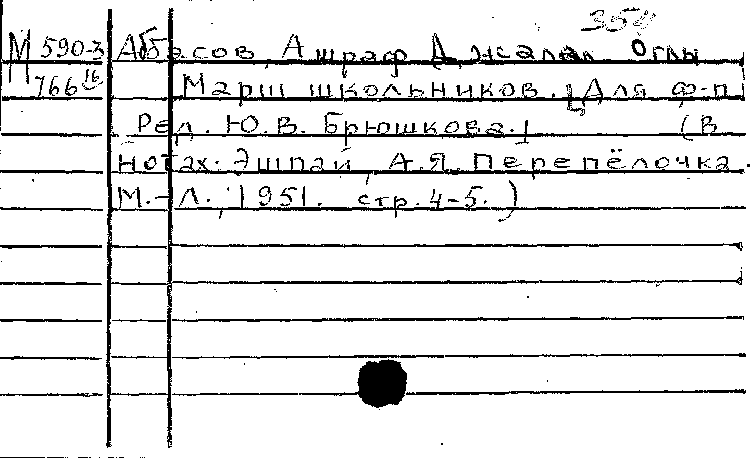 М 590-3 Аббасов, Ашраф Джалал Оглы
766 16 Марш школьников. [Для ф-п.
Ред. Ю.В. Брюшкова.] (В
нотах: Эшпай, А.Я. Перепёлочка.
М.-Л., 1951. стр. 4-5.)